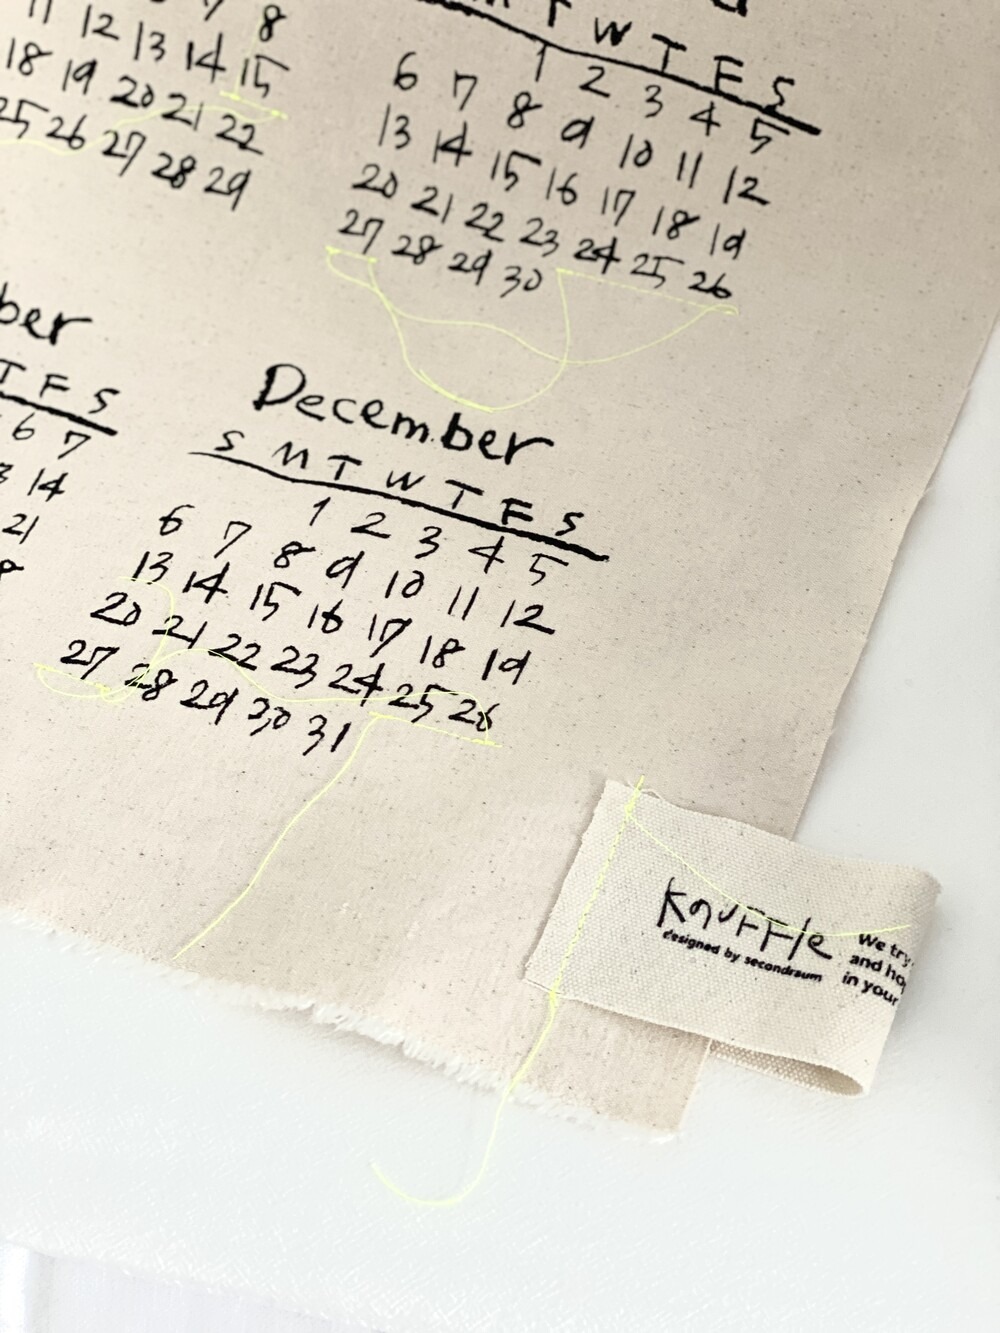 8
11 12 13 14 15
18 19 20 21 22
25 26 27 28 29
T W T F S
1 2 3 4 5
6 7 8 9 10 11 12
13 14 15 16 17 18 19
20 21 22 23 24 25 26
27 28 29 30
ber
T F S
6 7
14
21
8
December
S M T W T F S
1 2 3 4 5
6 7 8 9 10 11 12
13 14 15 16 17 18 19
20 21 22 23 24 25 26
27 28 29 30 31
Knuffle
designed by secondraum
We try
and ho
in your